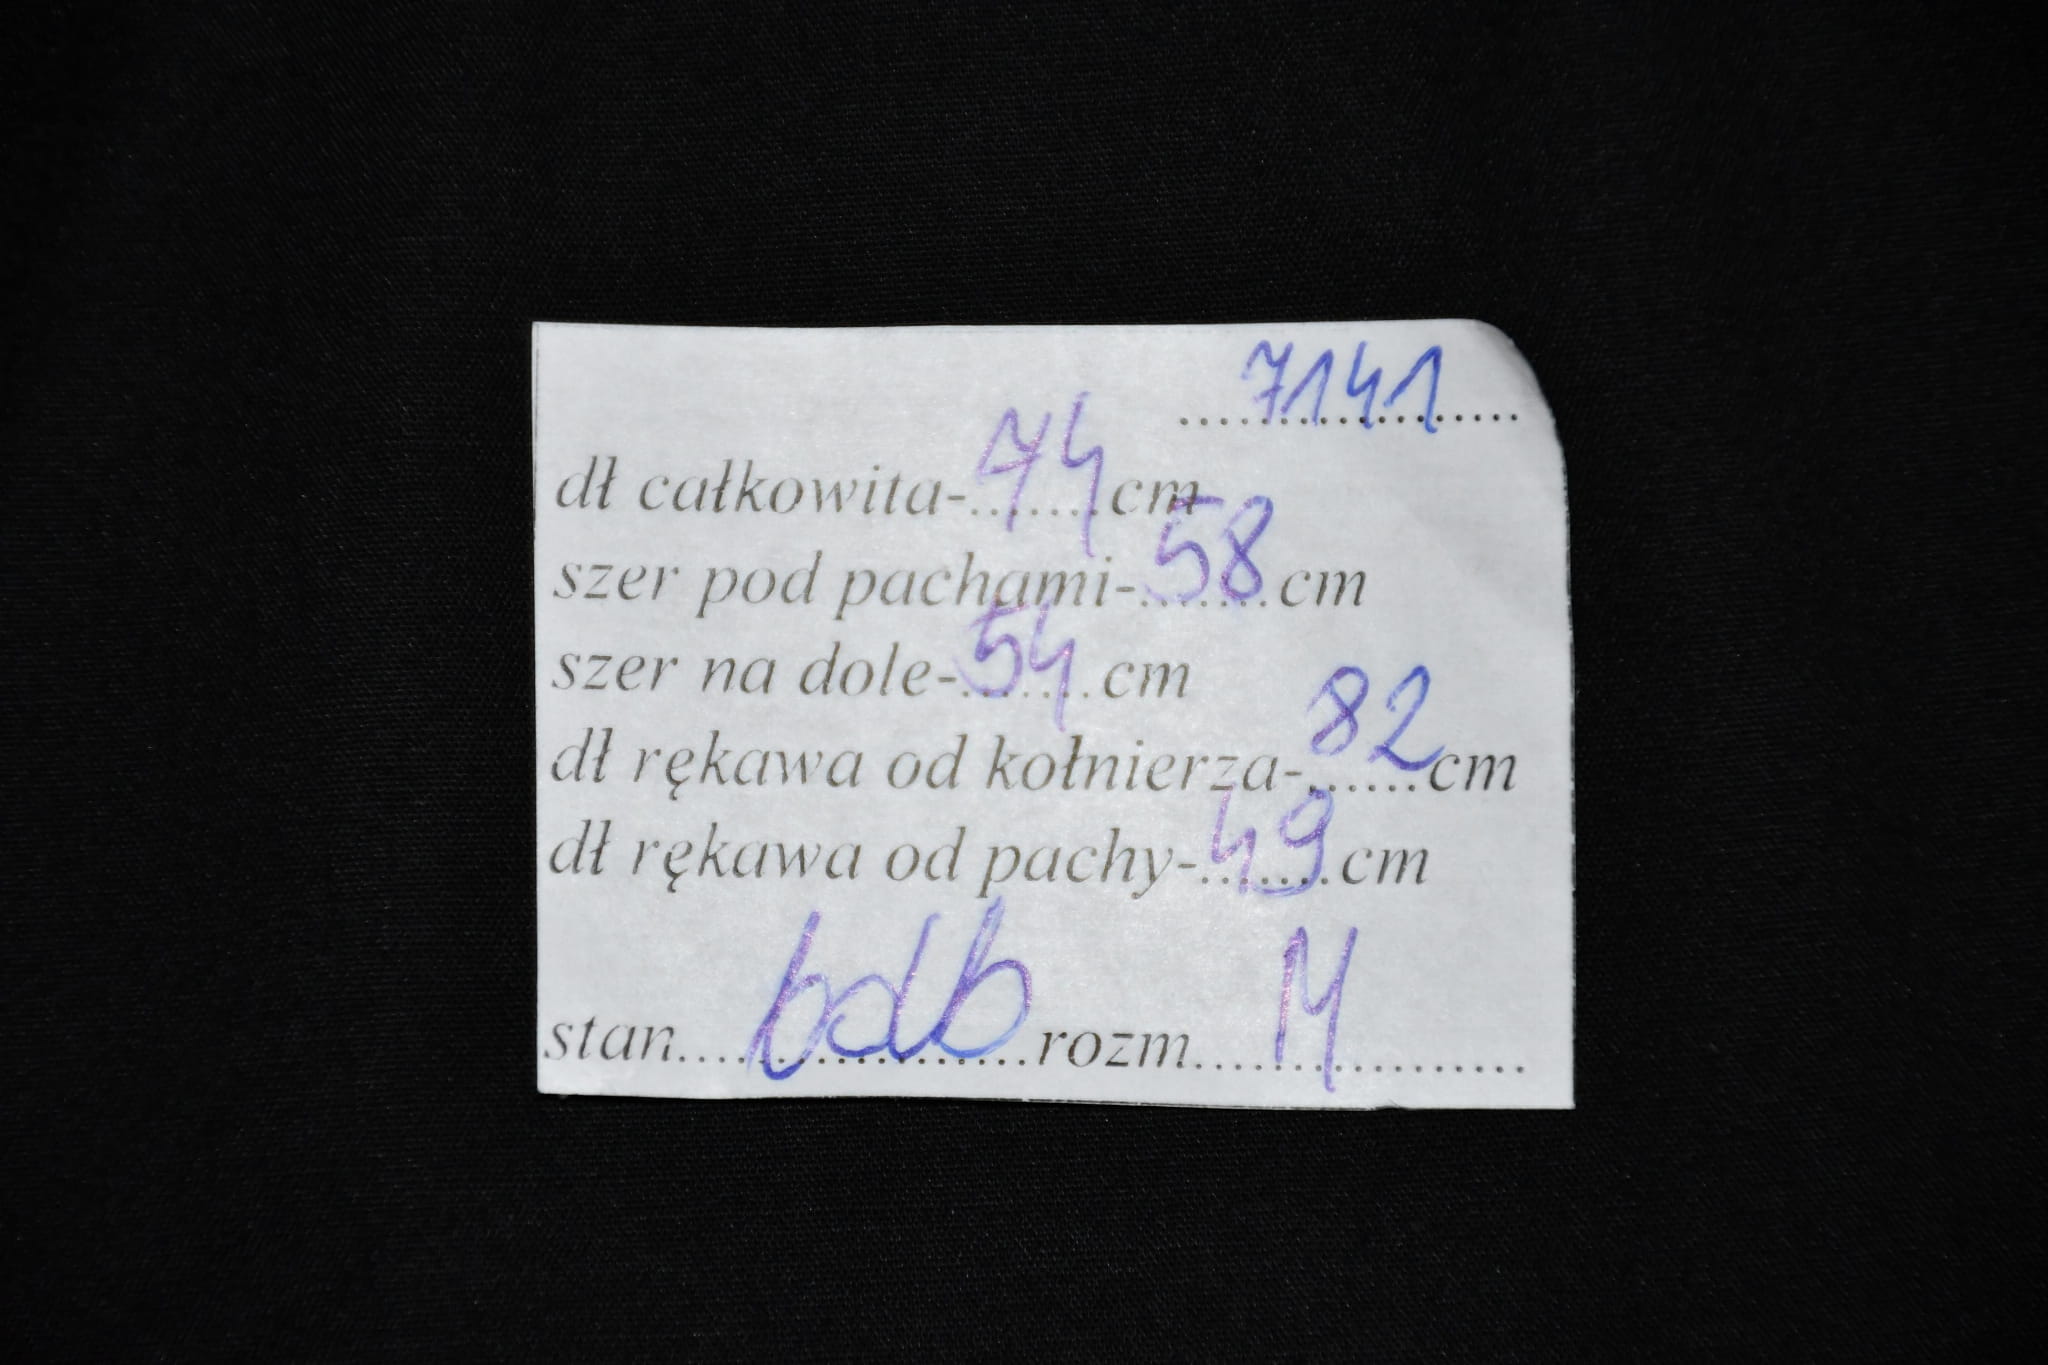 7141
dł całkowita-74cm
szer pod pachami-58cm
szer na dole-54cm
dł rękawa od kołnierza-82cm
dł rękawa od pachy-49cm
stan bdb rozm M